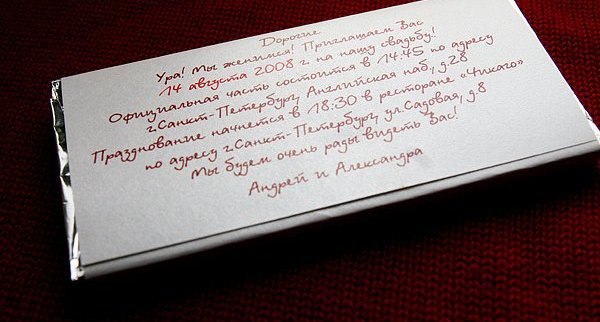 Дорогие
Ура! Мы женимся! Приглашаем Вас
14 августа 2008 г. на нашу свадьбу!
Официальная часть состоится в 14:45 по адресу
г.Санкт-Петербург, Английская наб., д.28
Празднование начнется в 18:30 в ресторане «Чикаго»
по адресу г.Санкт-Петербург, ул.Садовая, д.8
Мы будем очень рады видеть Вас!
Андрей и Александра